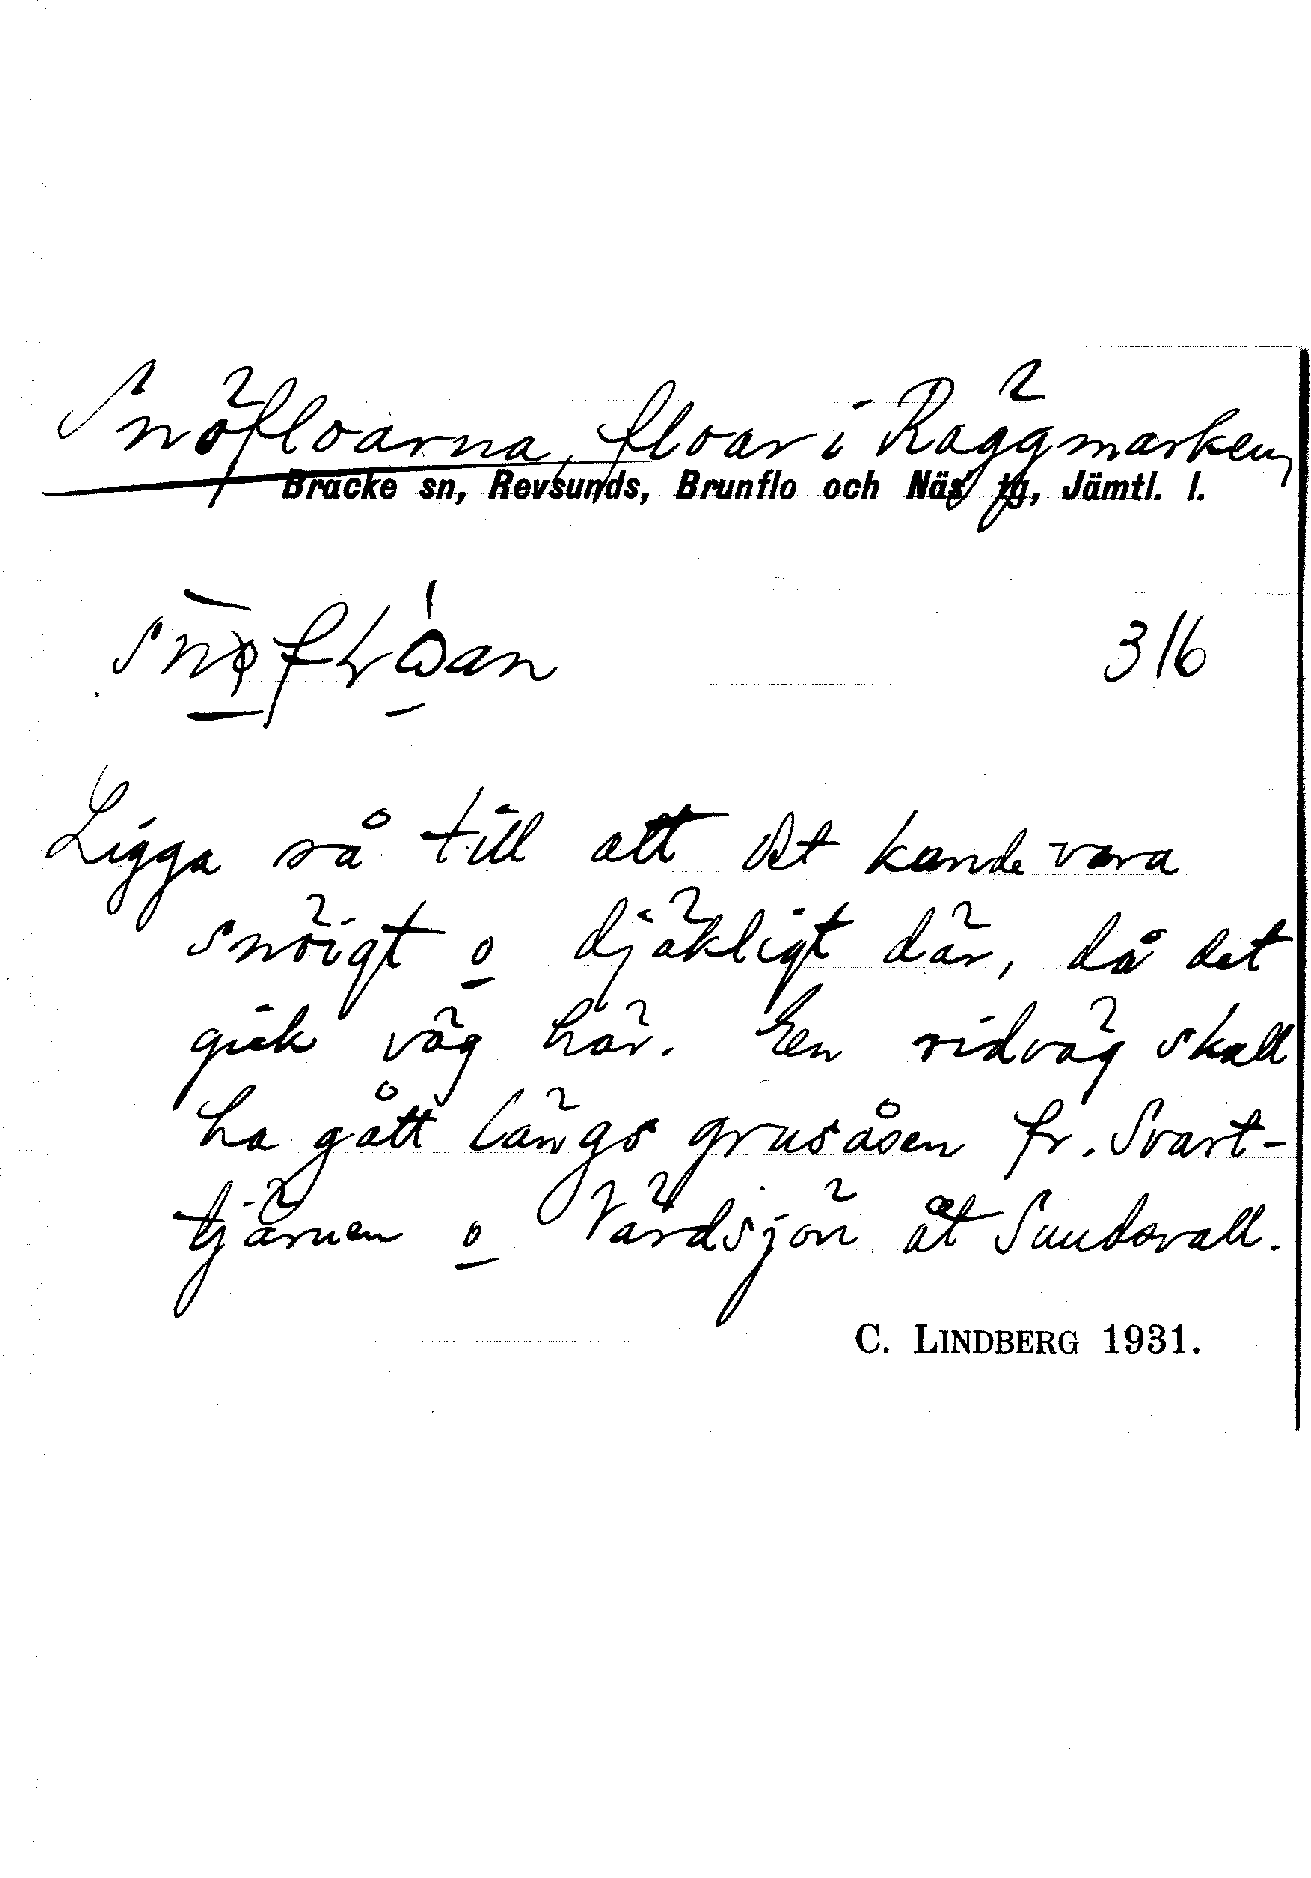 Snöfloarna, floar i Räggmarken,
Bräcke sn, Revsunds, Brunflo och Näs tg, Jämtl. l.
316
Ligga så till att det kunde vara
snöigt o djäkligt där, då det
gick väg här. En ridväg skall
ha gått längs grusåsen fr. Svart-
tjärnen o Värdsjön åt Sundsvall.
C. LINDBERG 1931.